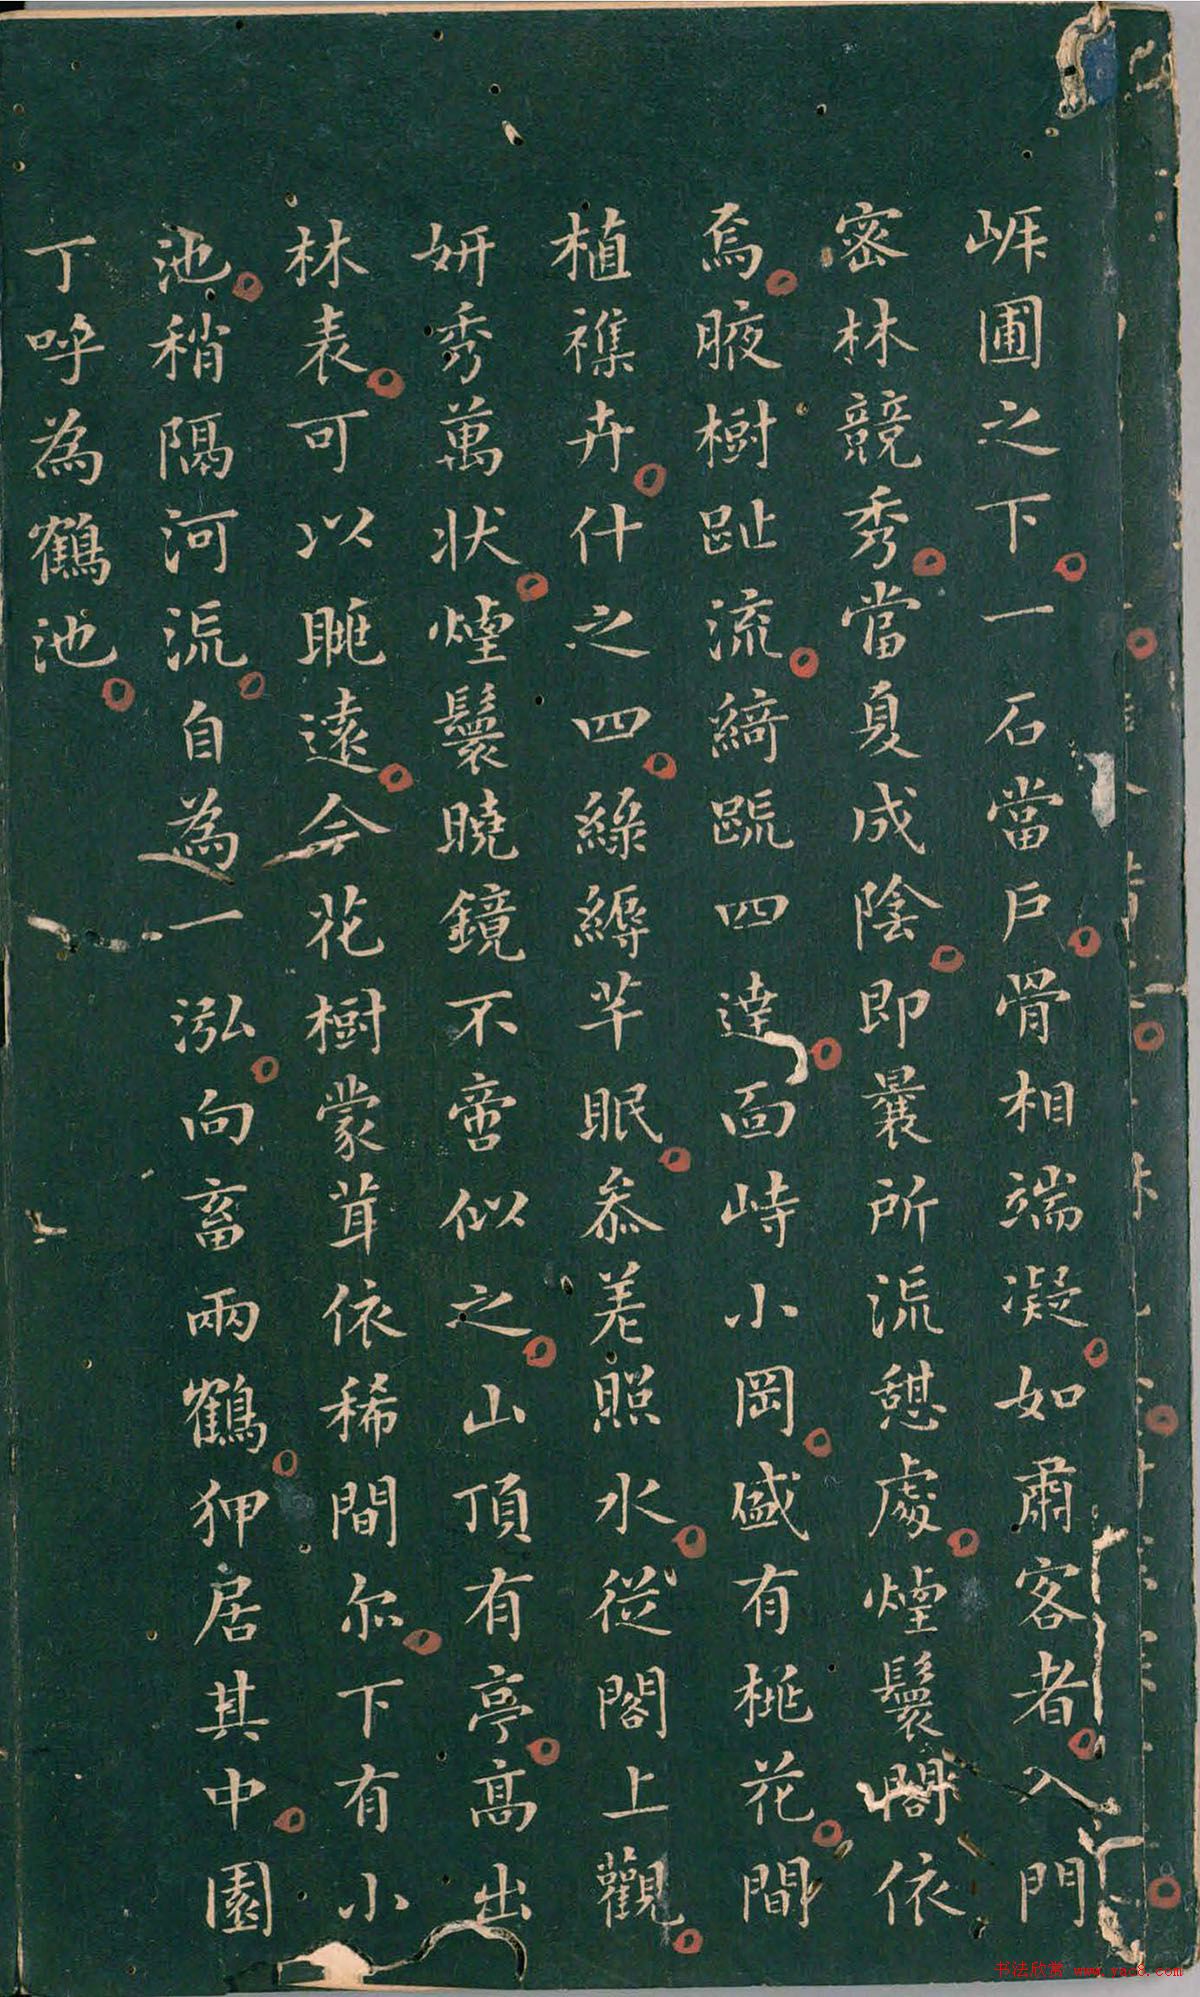 崕圃之下一石當戶骨相端凝如肅客者入門
密林競秀當夏成陰即曩所流憩處煙鬟閣依
焉腋樹趾流綺疏四達面峙小岡盛有桃花間
植襍卉什之四綠縟芊眠叅差照水從閣上觀
妍秀萬狀煙鬟曉鏡不啻似之山頂有亭高出
林表可以眺遠今花樹蒙茸依稀間尔下有小
池稍隔河流自為一泓向畜兩鶴狎居其中園
丁呼為鶴池
书法欣赏 www.yac8.com